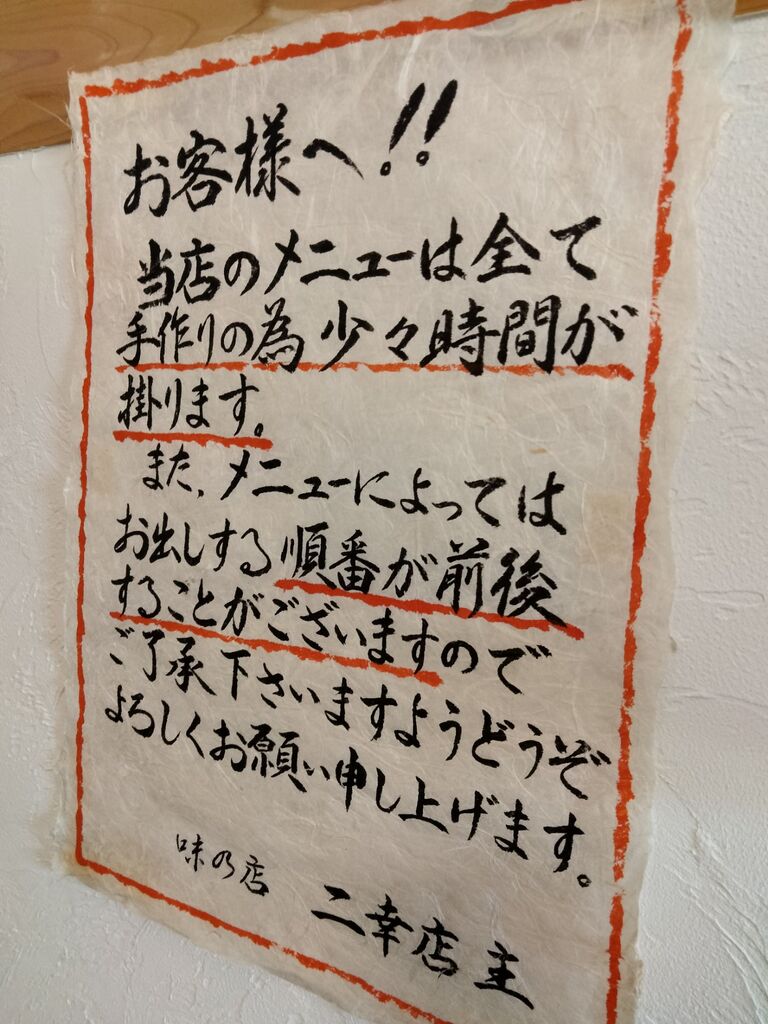 お客様へ!!
当店のメニューは全て
手作りの為少々時間が
掛ります。
また、メニューによっては
お出しする順番が前後
することがございますので
ご了承下さいますようどうぞ
よろしくお願い申し上げます。
味乃店 二幸店主